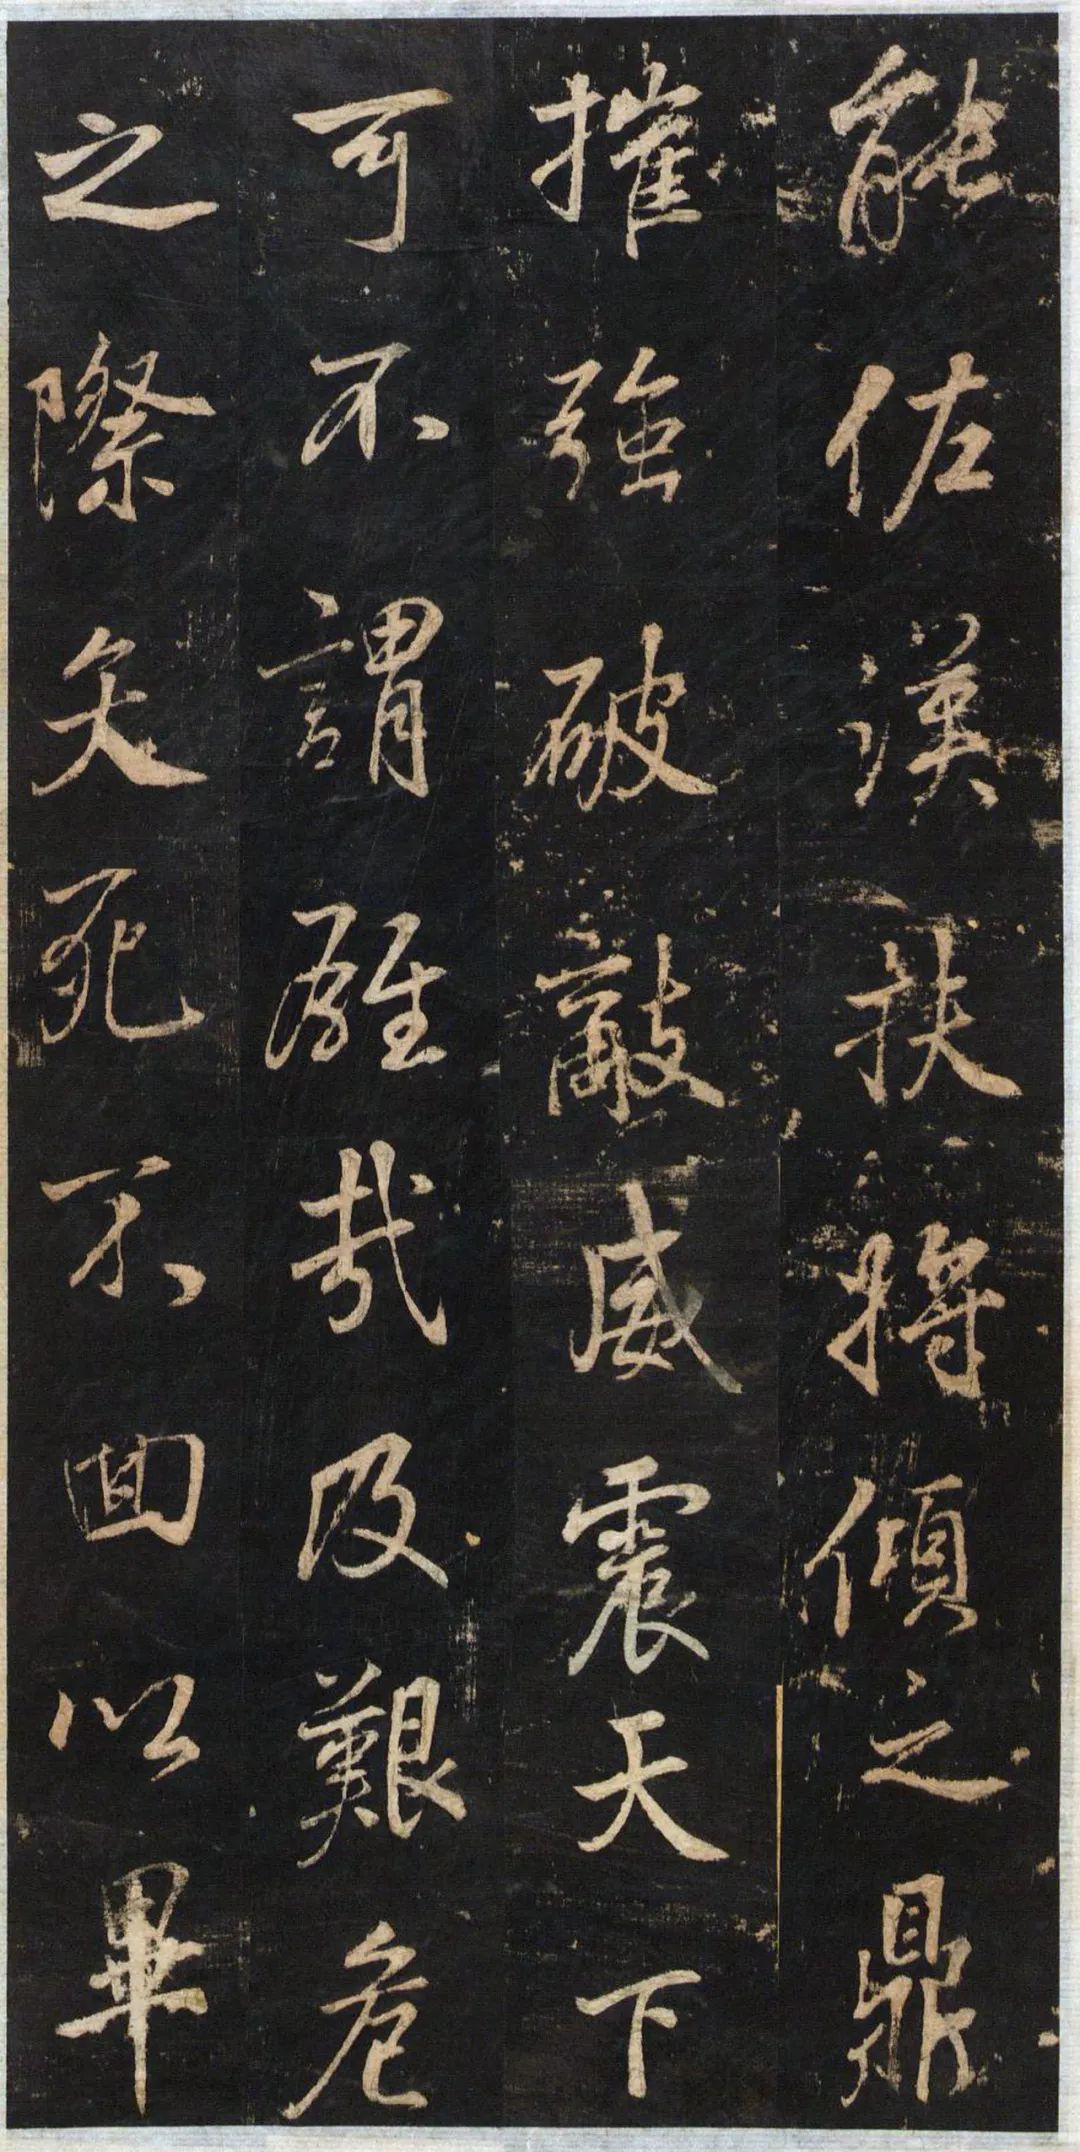 能佐漢扶將傾之鼎
摧強破敵威震天下
可不謂雄哉及艱危
之際矢死不回以畢